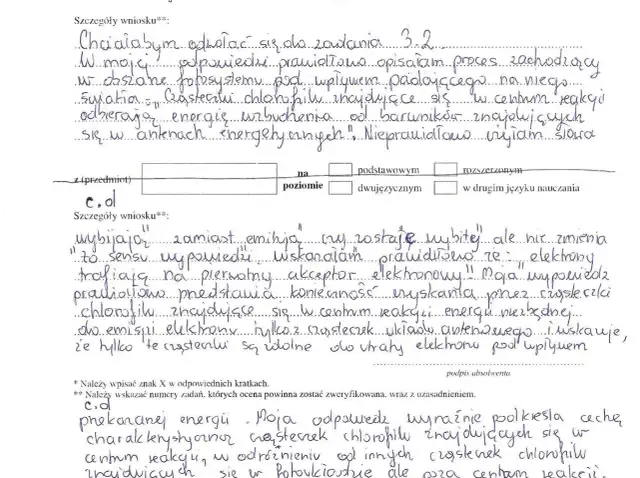 Szczegóły wniosku**:
Chciałabym odwołać się do zadania 3.2
W mojej odpowiedzi prawidłowo opisałam proces zachodzący
w obszarze fotosystemu pod wpływem padającego na niego
światła: „Cząsteczki chlorofilu znajdujące się w centrum reakcji
odbierają energię wzbudzenia od barwników znajdujących
się w antenach energetycznych". Nieprawidłowo użyłam słowa
z (przedmiot)
na poziomie
podstawowym
rozszerzonym
dwujęzycznym
w drugim języku nauczania
c.d
Szczegóły wniosku**:
„wybijają" zamiast „emitują" czy „zostaję wybite" ale nie zmienia
to sensu wypowiedzi, wskazałam prawidłowo że: „elektrony
trafiają na pierwotny akceptor elektronowy". Moja wypowiedź
prawidłowo przedstawia konieczność uzyskania przez cząsteczki
chlorofilu znajdujące się w centrum reakcji energii niezbędnej
do emisji elektronu tylko z cząsteczek układu antenowego i wskazuje,
że tylko te cząsteczki są zdolne do utraty elektronu pod wpływem
podpis absolwenta
* Należy wpisać znak X w odpowiednich kratkach.
** Należy wskazać numery zadań, których ocena powinna zostać zweryfikowana, wraz z uzasadnieniem.
c.d
przekazanej energii. Moja odpowiedź wyraźnie podkreśla cechę
charakterystyczną cząsteczek chlorofilu znajdujących się w
centrum reakcji, w odróżnieniu od innych cząsteczek chlorofilu
znajdujących się w fotoukładzie ale poza centrum reakcji.